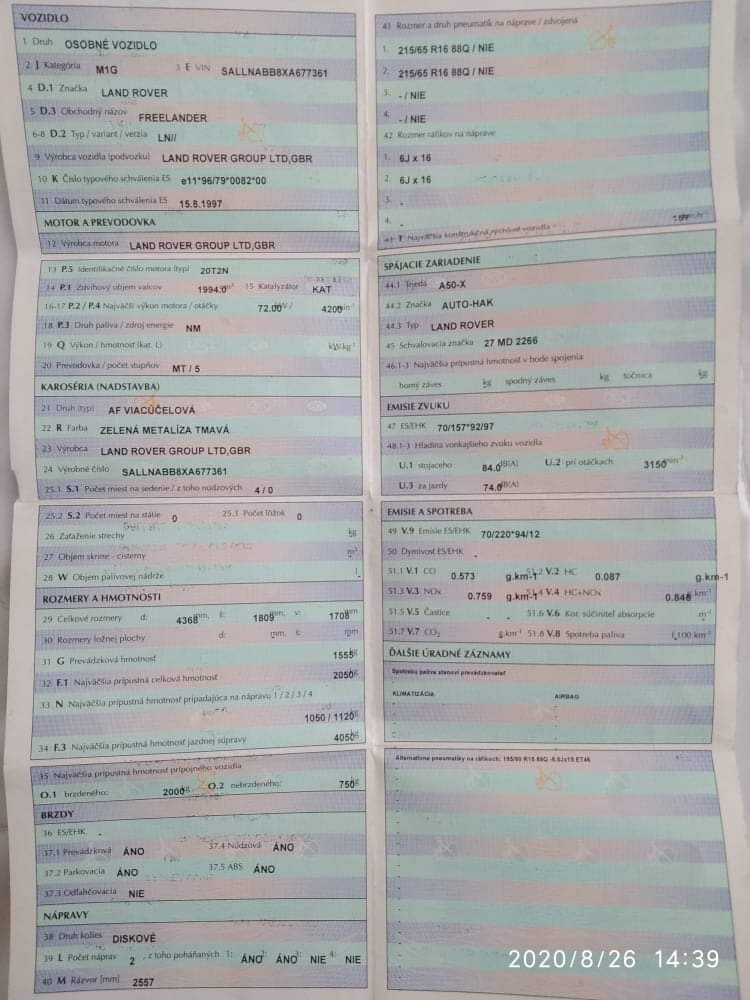 VOZIDLO
1 Druh OSOBNÉ VOZIDLO
2 J Kategória M1G 3 E VIN SALLNABB8XA677361
4 D.1 Značka LAND ROVER
5 D.3 Obchodný názov FREELANDER
6-8 D.2 Typ / variant / verzia LN//
9 Výrobca vozidla (podvozku) LAND ROVER GROUP LTD,GBR
10 K Číslo typového schválenia ES e11*96/79*0082*00
11 Dátum typového schválenia ES 15.8.1997
MOTOR A PREVODOVKA
12 Výrobca motora LAND ROVER GROUP LTD,GBR
13 P.5 Identifikačné číslo motora (typ) 20T2N
14 P.1 Zdvihový objem valcov 1994.0 cm³ 15 Katalyzátor KAT
16-17 P.2 / P.4 Najväčší výkon motora / otáčky 72.00 kW / 4200 min⁻¹
18 P.3 Druh paliva / zdroj energie NM
19 Q Výkon / hmotnosť (kat. L) kW.kg⁻¹
20 Prevodovka / počet stupňov MT / 5
KAROSÉRIA (NADSTAVBA)
21 Druh (typ) AF VIACÚČELOVÁ
22 R Farba ZELENÁ METALÍZA TMAVÁ
23 Výrobca LAND ROVER GROUP LTD,GBR
24 Výrobné číslo SALLNABB8XA677361
25.1 S.1 Počet miest na sedenie / z toho núdzových 4 / 0
25.2 S.2 Počet miest na státie 0 25.3 Počet lôžok 0
26 Zaťaženie strechy kg
27 Objem skrine - cisterny m³
28 W Objem palivovej nádrže l
ROZMERY A HMOTNOSTI
29 Celkové rozmery d: 4368 mm, š: 1809 mm, v: 1708 mm
30 Rozmery ložnej plochy d: mm, š: mm
31 G Prevádzková hmotnosť 1555 kg
32 F.1 Najväčšia prípustná celková hmotnosť 2050 kg
33 N Najväčšia prípustná hmotnosť pripadajúca na nápravu 1 / 2 / 3 / 4
1050 / 1120 kg
34 F.3 Najväčšia prípustná hmotnosť jazdnej súpravy 4050 kg
35 Najväčšia prípustná hmotnosť prípojného vozidla
O.1 brzdeného: 2000 kg O.2 nebrzdeného: 750 kg
BRZDY
36 ES/EHK -
37.1 Prevádzková ÁNO 37.4 Núdzová ÁNO
37.2 Parkovacia ÁNO 37.5 ABS ÁNO
37.3 Odľahčovacia NIE
NÁPRAVY
38 Druh kolies DISKOVÉ
39 L Počet náprav 2 , z toho poháňaných 1: ÁNO 2: ÁNO 3: NIE 4: NIE
40 M Rázvor [mm] 2557
41 Rozmer a druh pneumatík na náprave / zdvojená
1. 215/65 R16 88Q / NIE
2. 215/65 R16 88Q / NIE
3. - / NIE
4. - / NIE
42 Rozmer ráfikov na náprave
1. 6J x 16
2. 6J x 16
3. -
4. -
43 T Najväčšia konštrukčná rýchlosť vozidla
SPÁJACIE ZARIADENIE
44.1 Trieda A50-X
44.2 Značka AUTO-HAK
44.3 Typ LAND ROVER
45 Schvaľovacia značka 27 MD 2266
46.1-3 Najväčšia prípustná hmotnosť v bode spojenia
horný záves kg spodný záves kg točnica kg
EMISIE ZVUKU
47 ES/EHK 70/157*92/97
48.1-3 Hladina vonkajšieho zvuku vozidla
U.1 stojaceho 84.0 dB(A) U.2 pri otáčkach 3150 min⁻¹
U.3 za jazdy 74.0 dB(A)
EMISIE A SPOTREBA
49 V.9 Emisie ES/EHK 70/220*94/12
50 Dymivosť ES/EHK -
51.1 V.1 CO 0.573 g.km-1 51.2 V.2 HC 0.087 g.km-1
51.3 V.3 NOx 0.759 g.km-1 51.4 V.4 HC+NOx 0.846 g.km⁻¹
51.5 V.5 Častice - 51.6 V.6 Kor. súčiniteľ absorpcie m⁻¹
51.7 V.7 CO₂ g.km⁻¹ 51.8 V.8 Spotreba paliva l.100 km⁻¹
ĎALŠIE ÚRADNÉ ZÁZNAMY
Spotrebu paliva stanoví prevádzkovateľ
KLIMATIZÁCIA AIRBAG
Alternatívne pneumatiky na ráfikoch:
2020/8/26 14:39